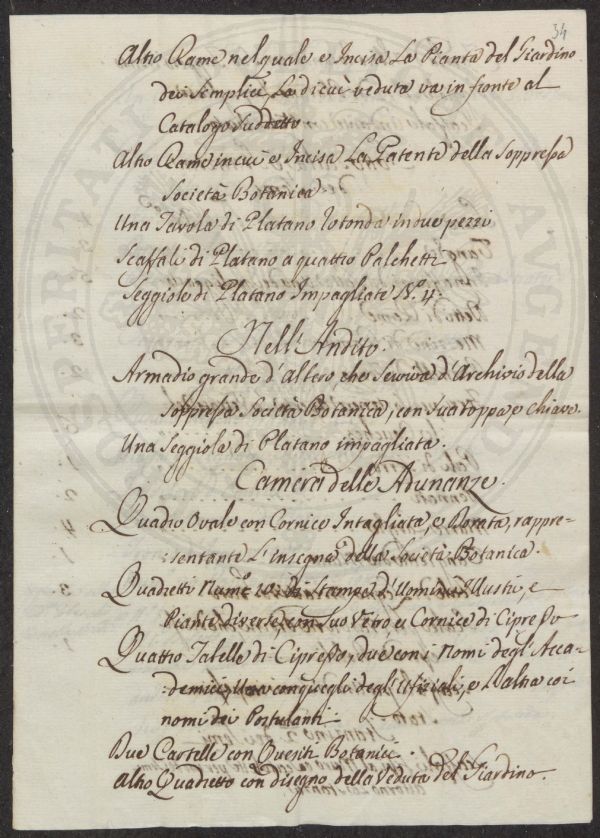 34
Altro Rame nel quale e Incisa La Pianta del Giardino
dei Semplici, La di cui veduta va in fronte al
Catalogo Suddetto
Altro Rame in cui e Incisa La Patente della Soppressa
Società Botanica.
Una Tavola di Platano rotonda in due pezzi
Scaffale di Platano a quattro Palchetti
Seggiole di Platano Impagliate N.o 4:
Nell' Andito.
Armadio grande d'Albero che Serviva d'Archivio della
Soppressa Società Botanica, con sua toppa, e chiave.
Una Seggiola di Platano impagliata.
Camera delle Adunanze.
Quadro Ovale con Cornice Intagliata, e Dorata, rappre-
:sentante L'insegna della Società Botanica.
Quadretti Num.o 10: di Stampe d'Uomini Illustri, e
Piante diverse, con Suo Vetro e Cornice di Cipresso
Quattro Tabelle di Cipresso, due con i Nomi degl'Acca-
:demici, Una con quegli degl'Ufiziali, e L'altra coi
nomi dei Postulanti.
Due Cartelle con Quesiti Botanici.
Altro Quadretto con disegno della Veduta del Giardino.